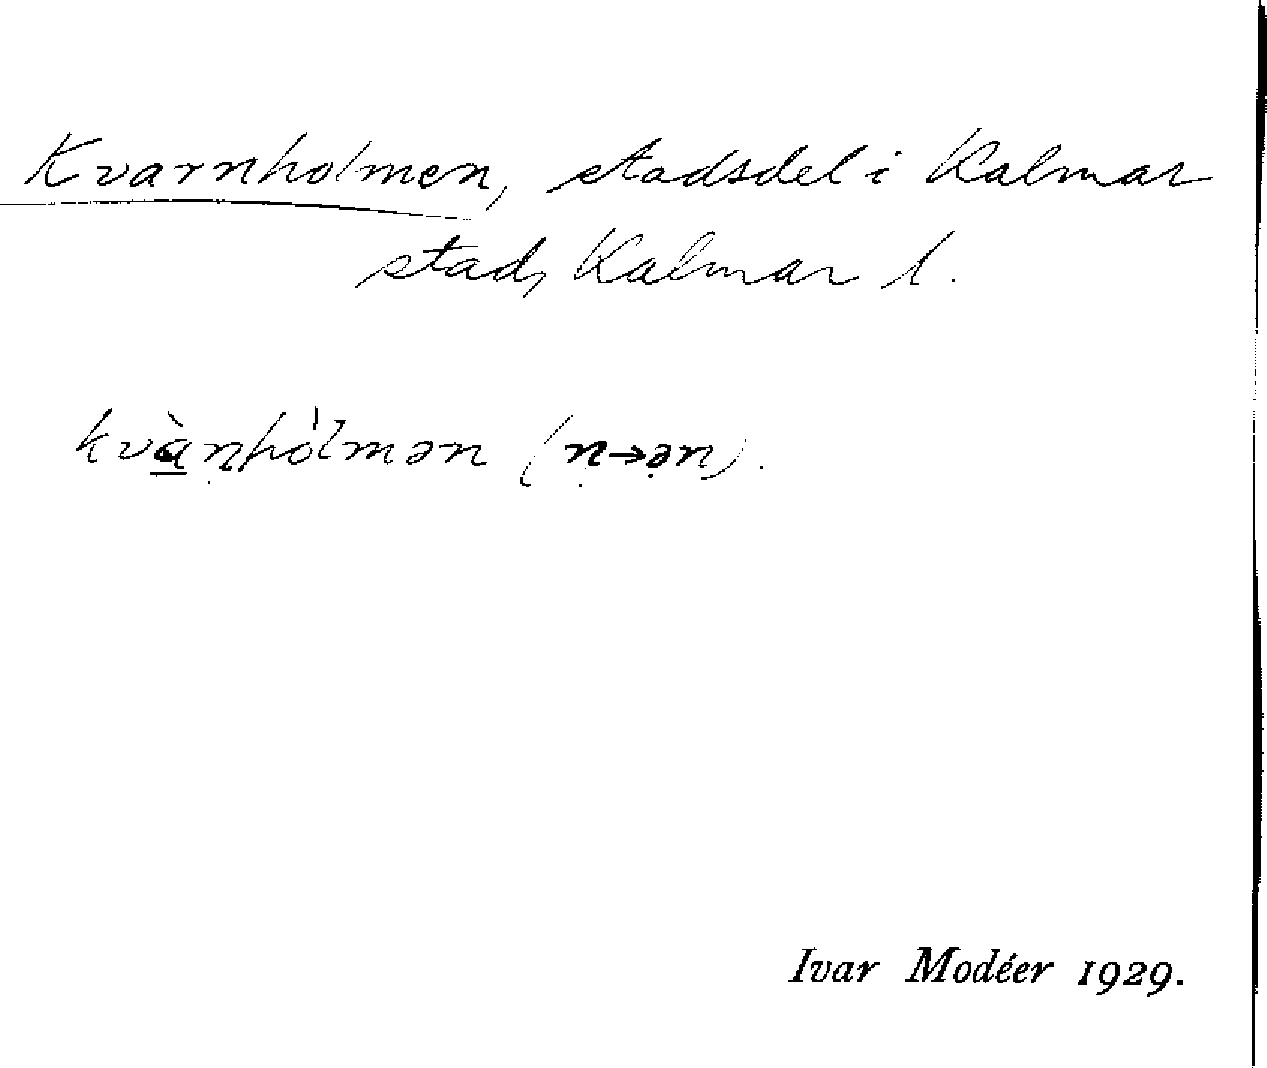 Kvarnholmen, stadsdel i Kalmar
stad, Kalmar l.
kvàṇhȯ́lmən (ṇ→ə̣n).
Ivar Modéer 1929.